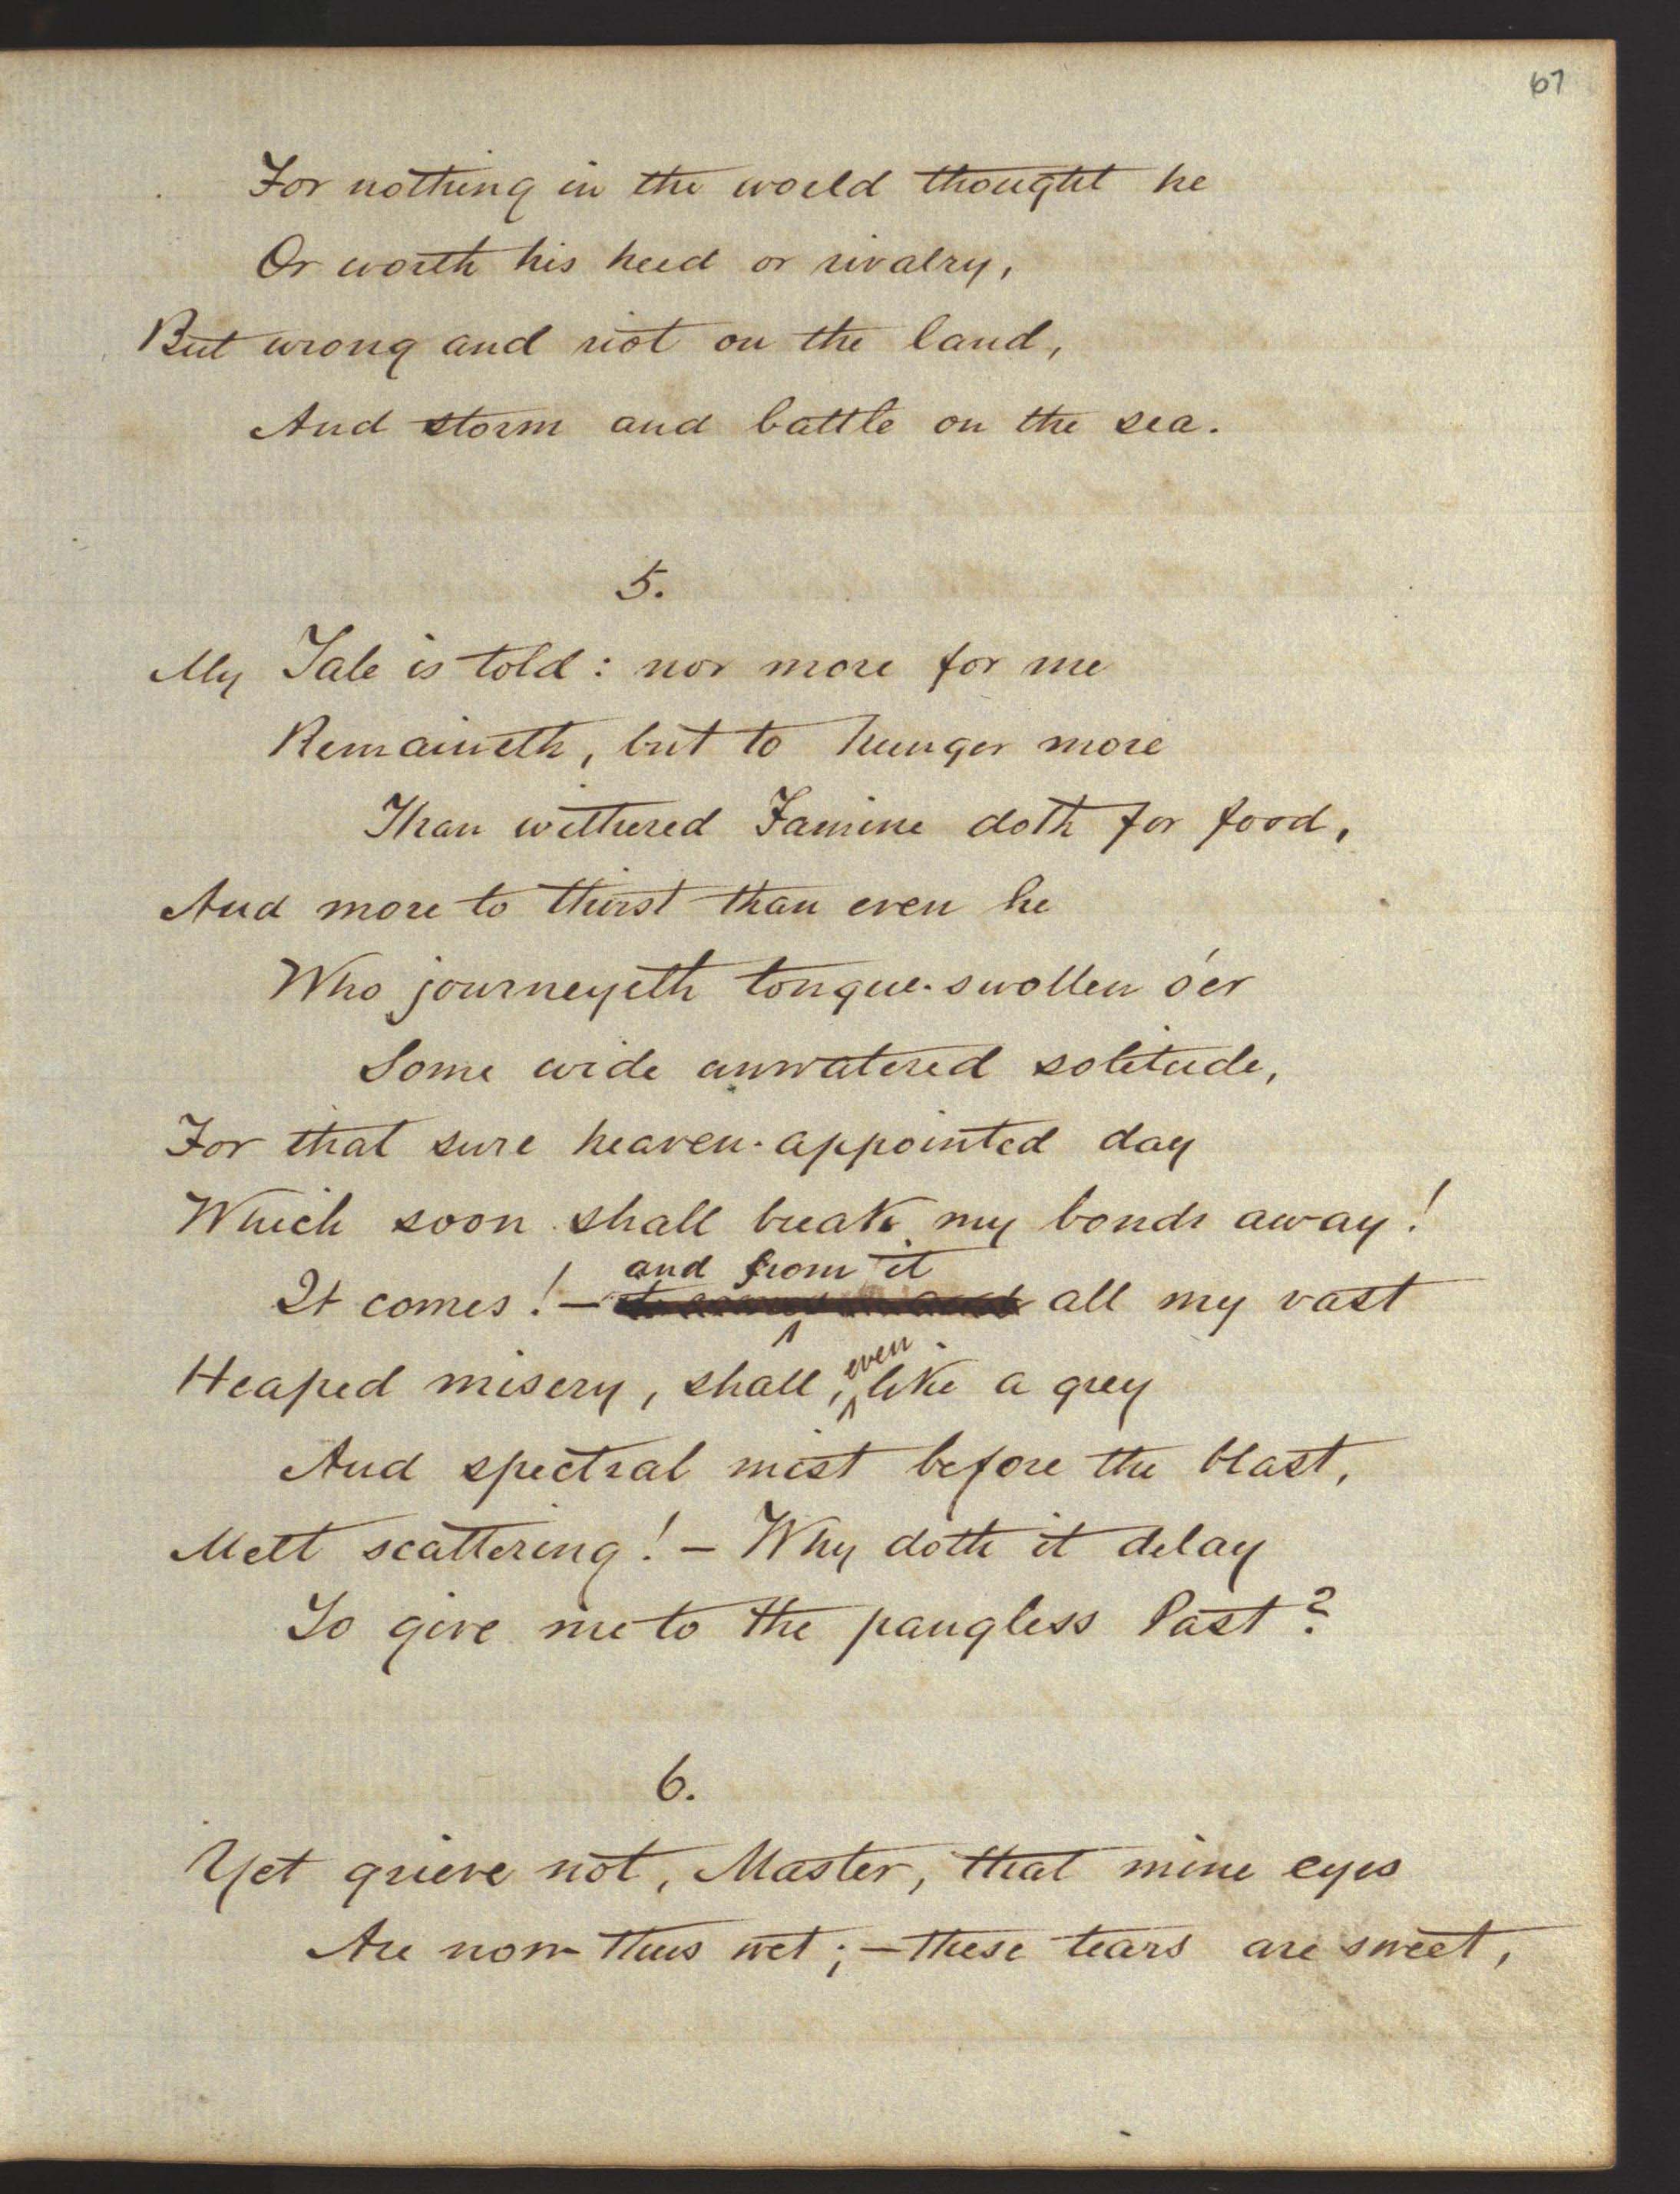 67
For nothing in the world thought he
Or worth his heed or rivalry,
But wrong and riot on the land,
And storm and battle on the sea.
5.
My Tale is told: nor more for me
Remaineth, but to hunger more
Than withered Famine doth for food,
And more to thirst than even he
Who journeyeth tongue-swollen o'er
Some wide unwatered solitude,
For that sure heaven-appointed day
Which soon shall break my bonds away!
and from it
It comes! — all my vast
even
Heaped misery, shall, like a grey
And spectral mist before the blast,
Melt scattering! — Why doth it delay
To give me to the pangless Past?
6.
Yet grieve not, Master, that mine eyes
Are now thus wet; — these tears are sweet,